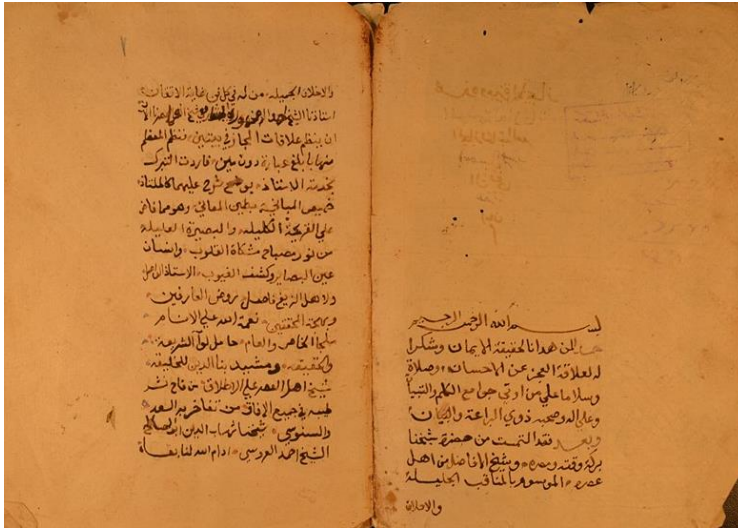 بسم الله الرحمن الرحيم
حمدا لمن هدانا لحقيقة الايمان وشكرا
له لعلاقة العجز عن الاحسان وصلاة
وسلاما على من اوتي جوامع الكلم والتبيا
وعلى اله وصحبه ذوي البراعة والبيان
وبعد فقد التمست من حضرة شيخنا
بركة وقته وعصره وشيخ الافاضل من اهل
عصره الموسوم بالمناقب الجليلة
والاخلاق
والاخلاق الجميلة من له في كل فن غاية الاتقان
استاذنا الشيخ احمد
ان ينظم علاقات المجاز في بيتين فنظم المعظم
منها بابلغ عبارة دون مين فاردت التبرك
بخدمة الاستاذ بوضع شرح عليهما كالملتاذ
خميص المباني بطين المعاني وهو مما فاض
على القريحة الكليلة والبصيرة العليلة
من نور مصباح مشكاة القلوب وانسان
عين البصاير وكشف الغيوب الاستاذ
ولاهل الزيغ فاصل روض العارفين
وبهجة المحققين نعمة الله على الانام
ملجا الخاص والعام حامل لوآ الشريعة
والحقيقة ومشيد بنا الدين للخليقة
شيخ اهل العصر على الاطلاق من فاح نشر
طيبه في جميع الافاق من تفاخر به السعد
والسنوسي شيخنا شهاب الدين ابو الصلاح
الشيخ احمد العروسي ادام الله لنا بقاه